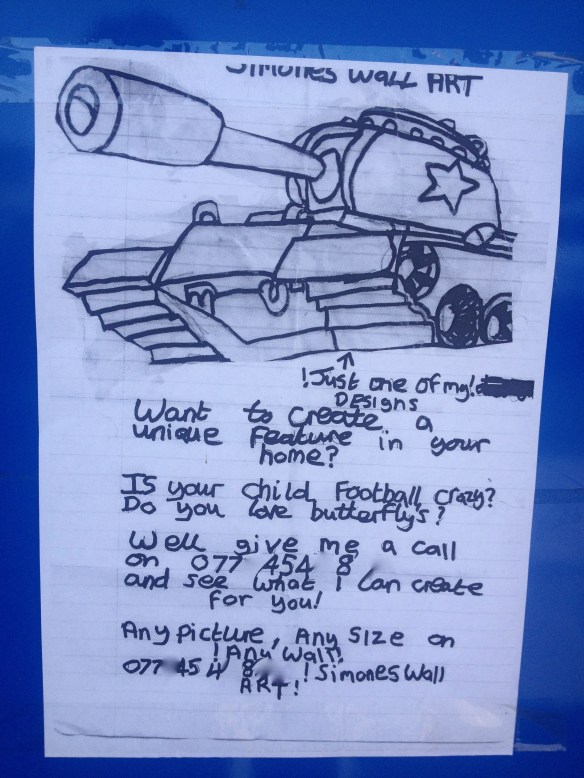 SIMONES WALL ART
!Just one of my!
DESIGNS
Want to create a
unique Feature in your
home?
IS your child Football crazy?
Do you love butterfly's?
Well give me a call
on 077 454 8
and see what I can create
for you!
Any picture, Any size on
!Any Wall!
077 454 8 !Simones Wall
ART!